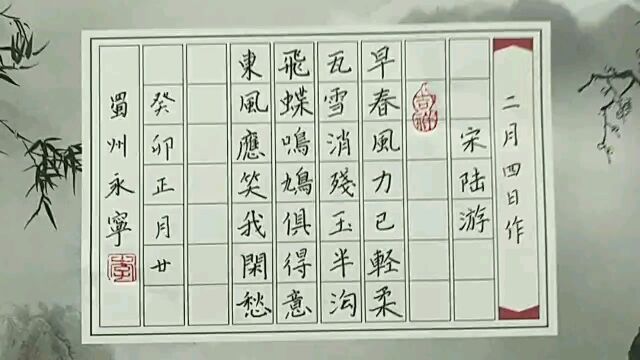 二月四日作
宋陆游
吉祥
早春風力已輕柔
瓦雪消殘玉半沟
飛蝶鳴鳩俱得意
東風應笑我閑愁
癸卯正月廿
蜀州永寧
李